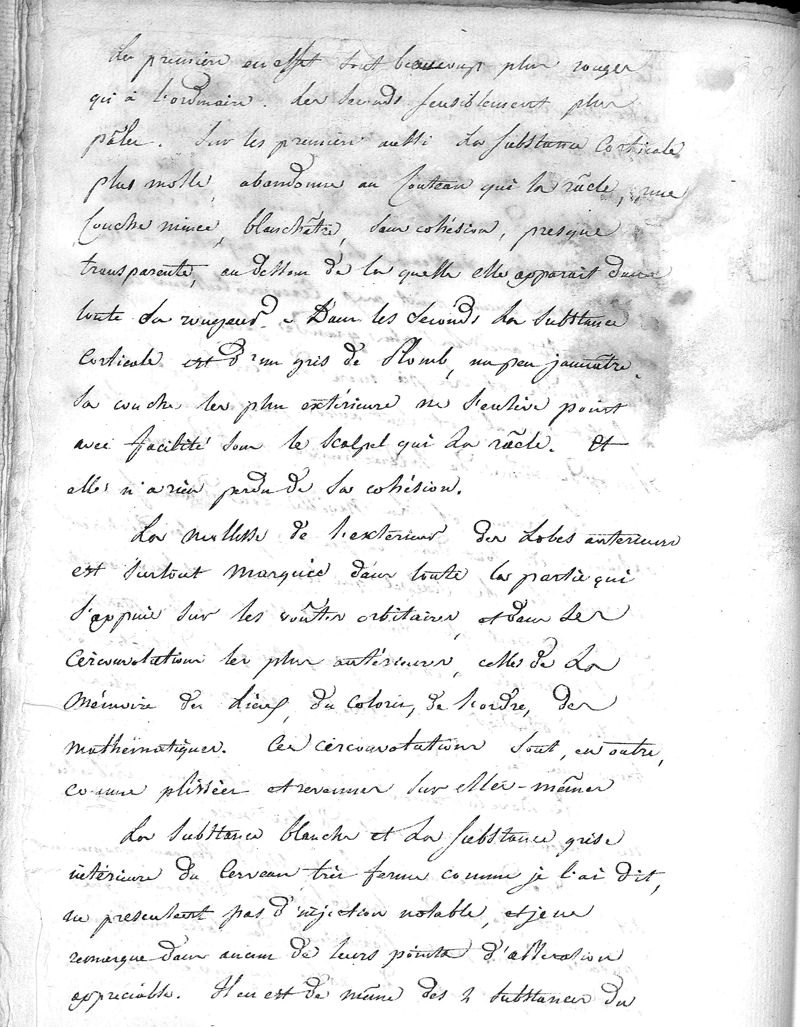 Les premiers en effet sont beaucoup plus rouges
qu'à l'ordinaire. Les seconds sensiblement plus
pâles. Sur les premiers aussi la substance corticale
plus molle, abandonne au couteau qui la râcle, une
couche mince, blanchâtre, sans cohésion, presque
transparente, au dessous de la quelle elle apparait dans
toute sa rougeur. Dans les seconds la substance
corticale est d'un gris de plomb, un peu jaunâtre.
Sa couche la plus extérieure ne s'enlève point
avec facilité sous le scalpel qui la râcle. Et
elle n'a rien perdu de sa cohésion.
La mollesse de l'extérieur des lobes antérieurs
est surtout marquée dans toute la partie qui
s'appuie sur les voûtes orbitaires, et dans les
circonvolutions les plus antérieures, celles de la
mémoire des lieux, du coloris, de l'ordre, des
mathématiques. Ces circonvolutions sont, en outre,
comme plissées et revenues sur elles-mêmes
La substance blanche et la substance grise
intérieure du cerveau très ferme comme je l'ai dit,
ne présentent pas d'injection notable, et je ne
remarque dans aucun de leurs points d'altération
appréciable. Il en est de même des 2 substances du